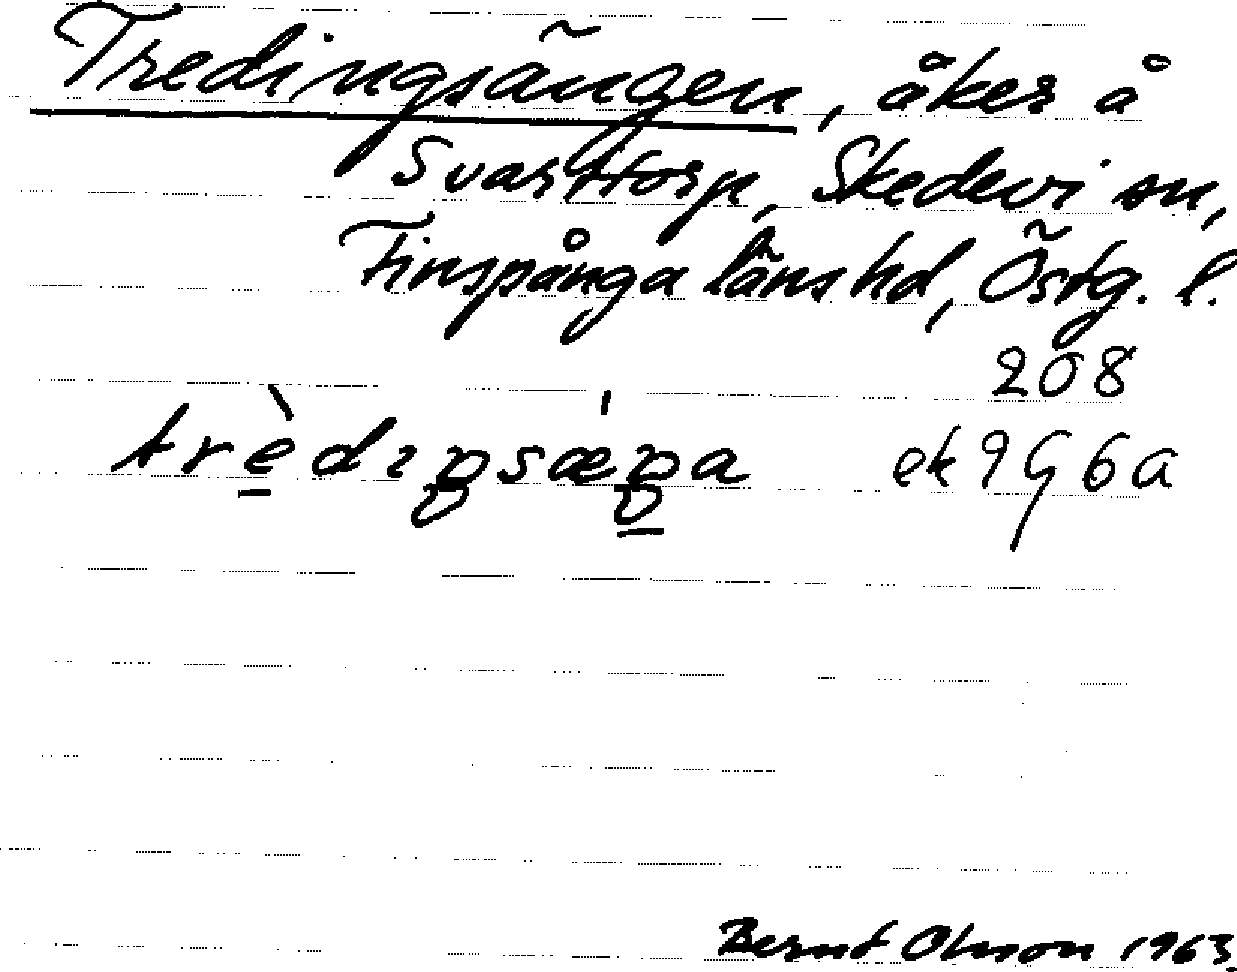 Tredingsängen, åker å
Svarttorp, Skedevi sn,
Finspånga läns hd, Östg. l.
208
trèdıŋsæŋa ek 9G6a
Bernt Olsson 1963.